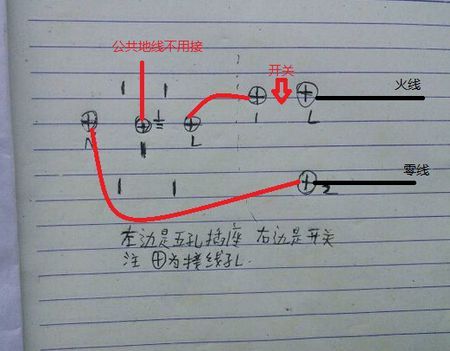 公共地线不用接
开关
火线
N
L
1
L
零线
2
左边是五孔插座 右边是开关
注 ⊕为接线孔.